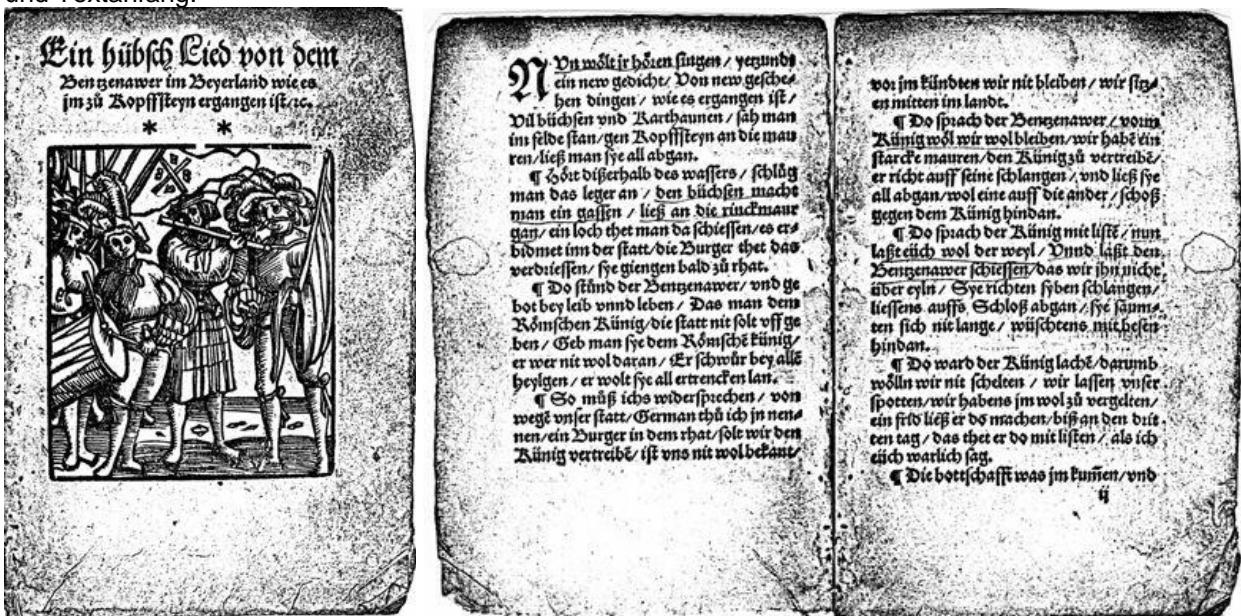 und Textanfang:
Ein hübsch Lied von dem
Bentzenawer im Beyerland wie es
jm zů Kopffsteyn ergangen ist/ꝛc.
* *
NVn wölt jr hören singen / yetzunds
ein new gedicht / Von new gesche-
hen dingen / wie es ergangen ist /
Vil büchsen vnd Karthaunen / sah man
im felde stan / gen Kopffsteyn an die mau
ren / ließ man sye all abgan.
¶ Hört dißerhalb des wassers / schlůg
man das leger an / den büchsen macht
man ein gassen / ließ an die rinckmaur
gan / ein loch thet man da schiessen / es er-
bidmet inn der statt / die Burger thet das
verdriessen / sye giengen bald zů rhat.
¶ Do stůnd der Bentzenawer / vnd ge
bot bey leib vnnd leben / Das man dem
Römschen Künig / die statt nit solt vff ge
ben / Geb man sye dem Römschē künig /
er wer nit wol daran / Er schwůr bey allē
heylgen / er wolt sye all ertrencken lan.
¶ So můß ichs widersprechen / von
wegē vnser statt / German thů ich jn nen-
nen / ein Burger in dem rhat / solt wir den
Künig vertreibē / ist vns nit wol bekant /
vor jm kündten wir nit bleiben / wir sitz-
en mitten im landt.
¶ Do sprach der Bentzenawer / vorm
Künig wöl wir wol bleiben / wir habē ein
starcke mauren / den Künig zů vertreibē /
er richt auff seine schlangen / vnd ließ sye
all abgan / wol eine auff die ander / schoß
gegen dem Künig hindan.
¶ Do sprach der Künig mit listē / nun
laßt eüch wol der weyl / Vnnd laßt den
Bentzenawer schiessen / das wir jhn nicht
über eyln / Sye richten syben schlangen /
liessens auffs Schloß abgan / sye saum-
ten sich nit lange / wüschtens mit besen
hindan.
¶ Do ward der Künig lachē / darumb
wölln wir nit schelten / wir lassen vnser
spotten / wir habens jm wol zů vergelten /
ein frid ließ er do machen / biß an den drit
ten tag / das thet er do mit listen / als ich
eüch warlich sag.
¶ Die bottschafft was jm kum̃en / vnd
ij